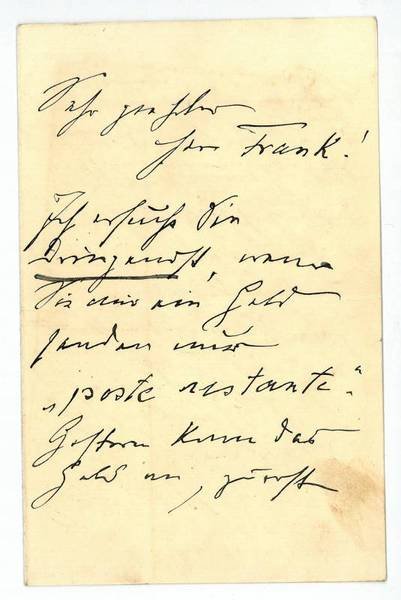 Sehr geehrter
Herr Frank!
Ich ersuche Sie
dringendst, wenn
Sie mir ein Geld
senden nur
„poste restante“.
Gestern kam das
Geld an, zuerst